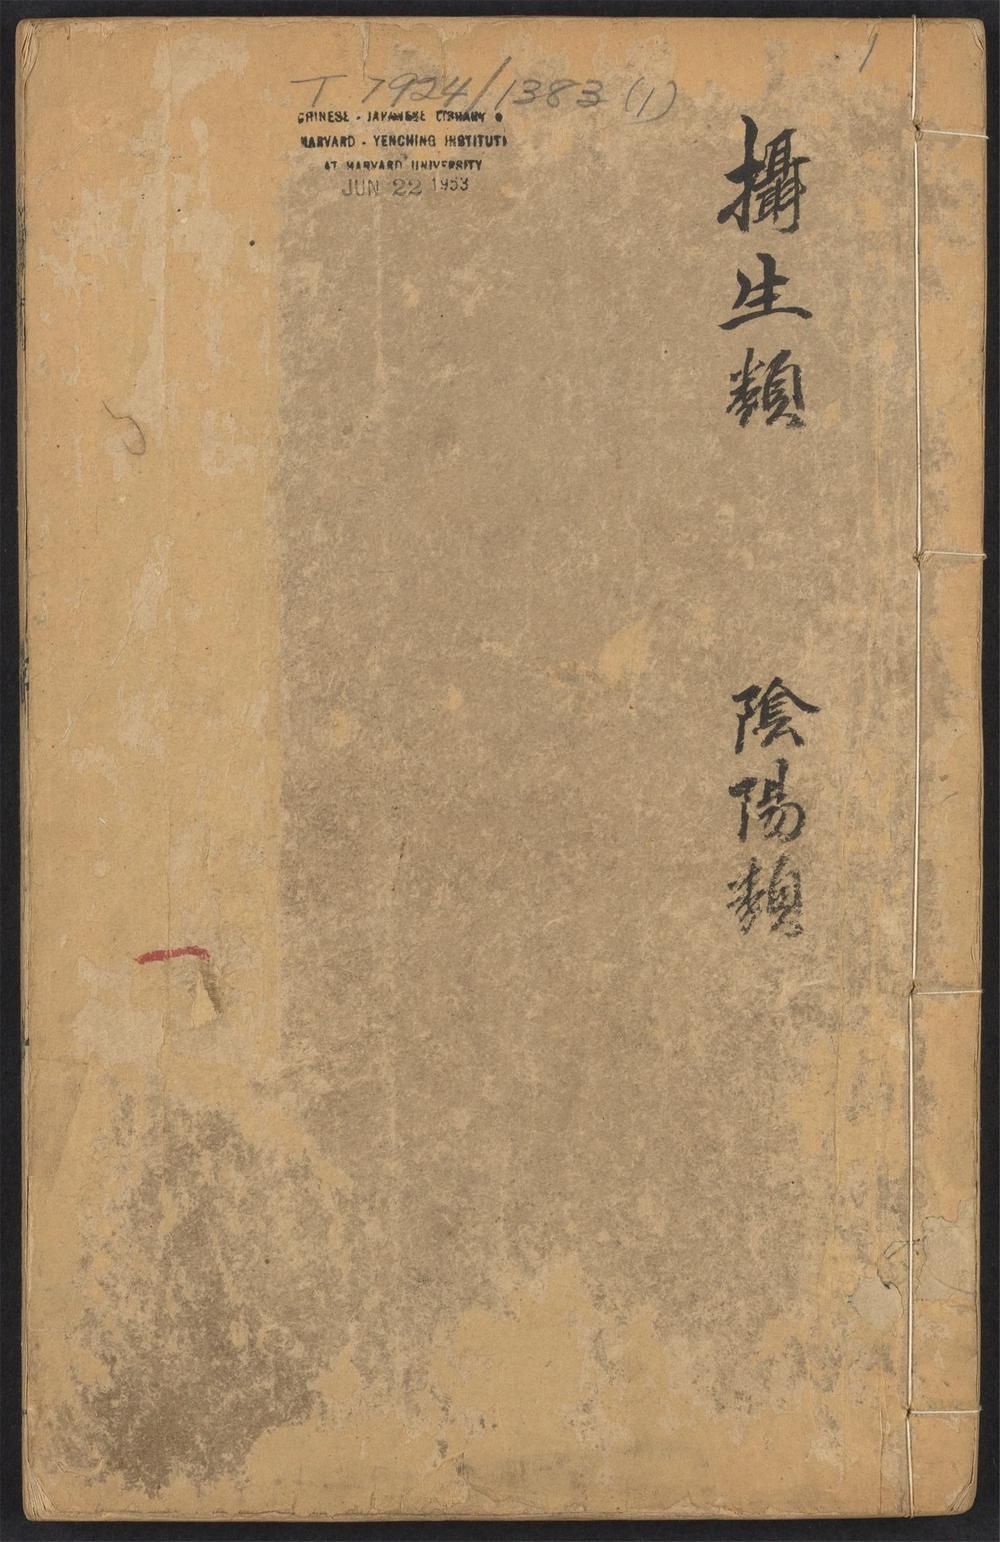 1
T 7924/1383 (1)
CHINESE - JAPANESE LIBRARY
HARVARD - YENCHING INSTITUTE
AT HARVARD UNIVERSITY
JUN 22 1953
攝生類
陰陽類